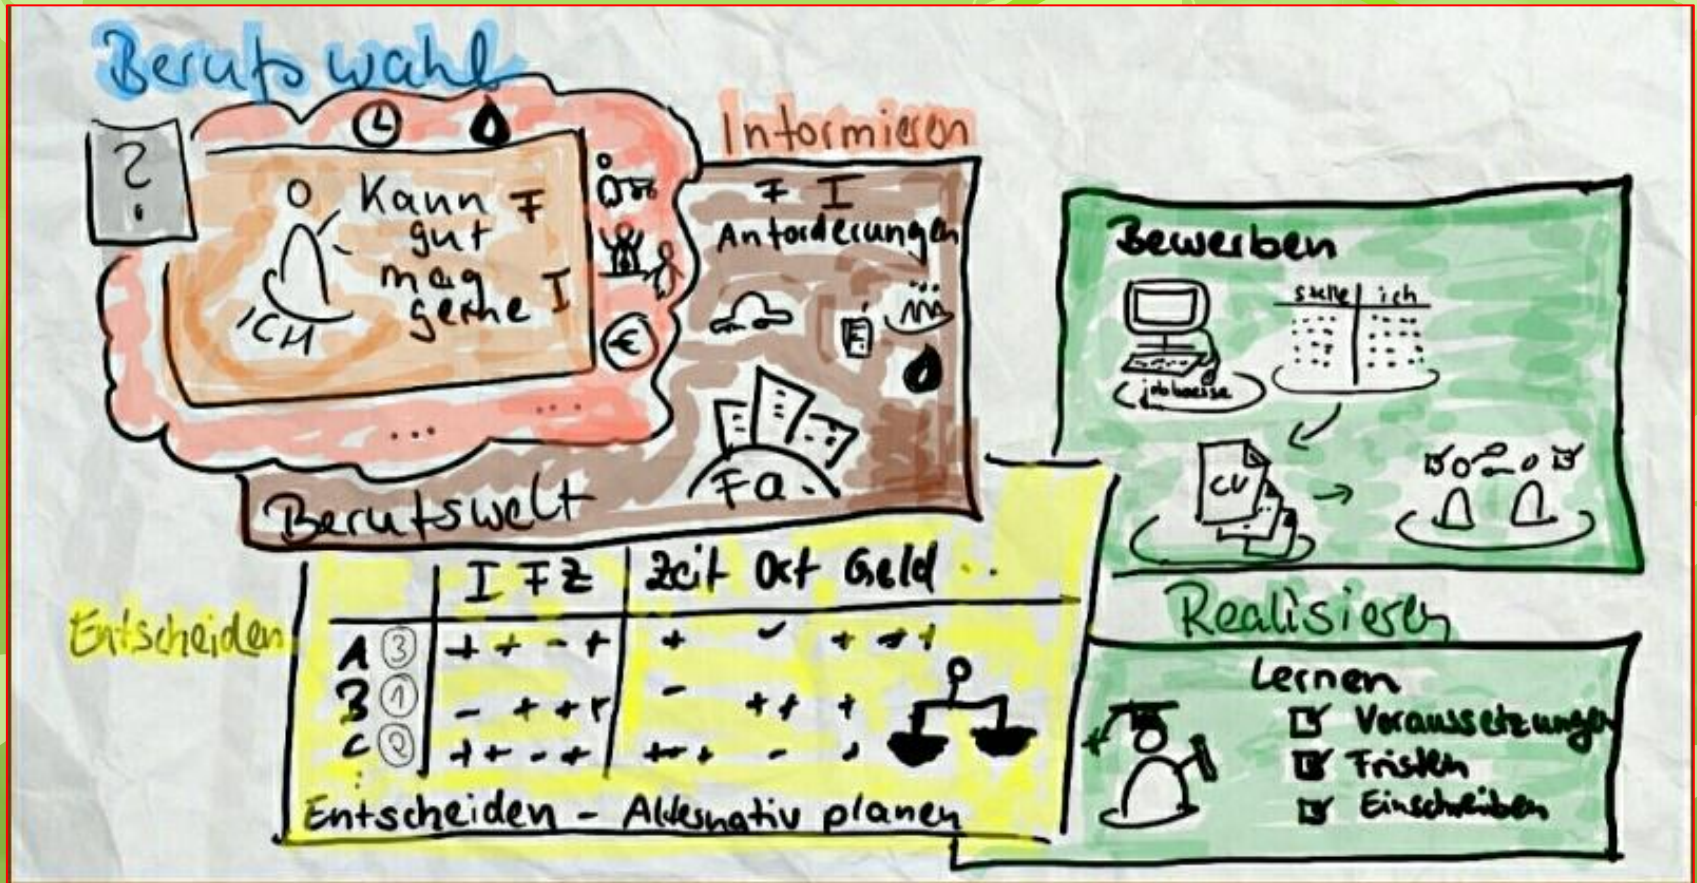 Berufswahl
?
Kann F
gut
mag
gerne I
ICH
€
...
...
Informieren
F I
Anforderungen
Fa.
Berufswelt
Entscheiden
I F Z Zeit Ort Geld ..
A 3 + + - + + ✓ + + +
B 1 - + + + - + + +
C 2 + + - + + - +
Entscheiden - Alternativ planen
Bewerben
Stelle ich
jobboerse
CV
Realisieren
Lernen
☑ Voraussetzungen
☑ Fristen
☑ Einschreiben